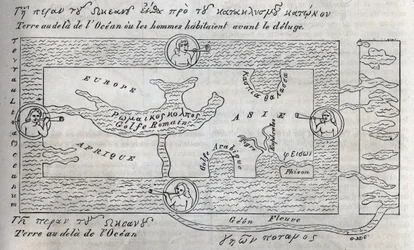 Γῆ πέραν τοῦ Ὠκεανοῦ ἔνθα πρὸ τοῦ κατακλυσμοῦ κατῴκουν
Terre au delà de l'Océan où les hommes habitaient avant le déluge.
EUROPE
Κασπία θάλασσα
Ρωμαικος κολπος
Golfe Romain
ASIE
AFRIQUE
Golfe Arabique
Euphrates
φεισων
Phison
Géon Fleuve
Γῆ πέραν τοῦ Ὠκεανοῦ
Terre au delà de l'Océan
γηών ποταμος